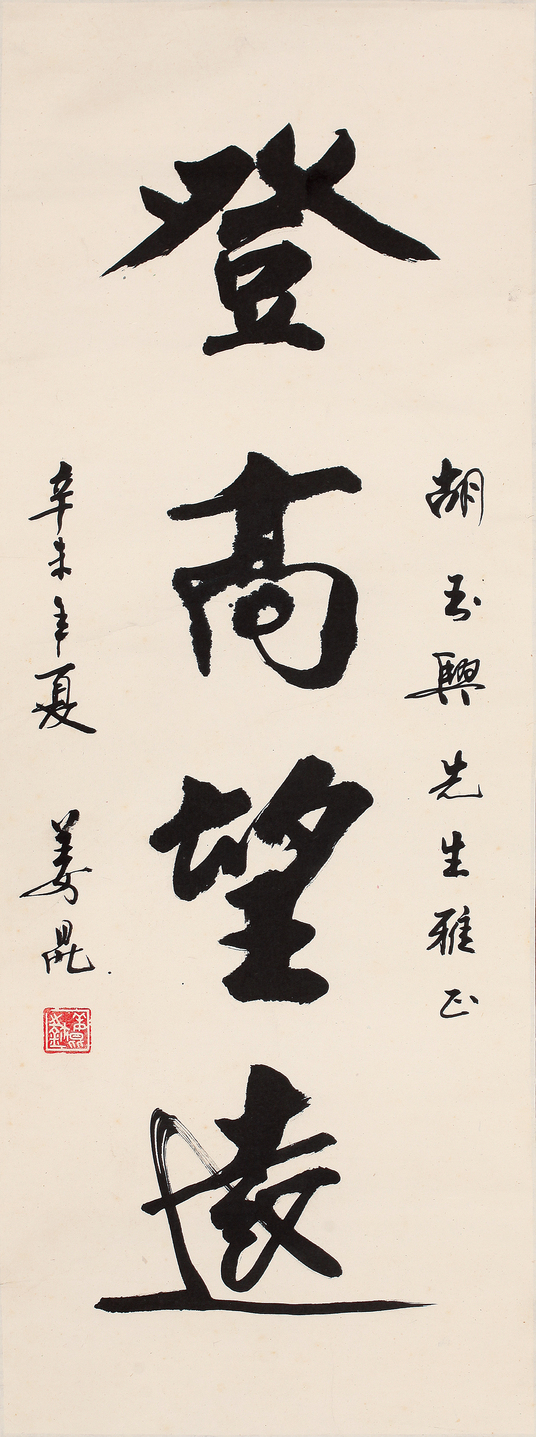 胡玉興先生雅正
登高望遠
辛未年夏 姜鼎